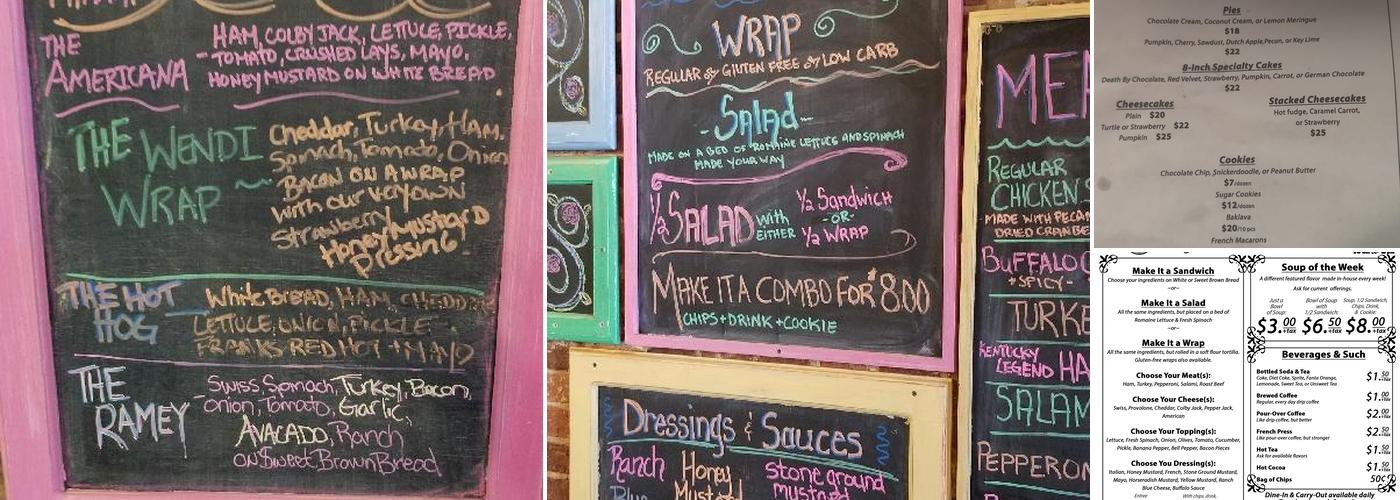 THE AMERICANA
HAM, COLBY JACK, LETTUCE, PICKLE,
TOMATO, CRUSHED LAYS, MAYO,
HONEY MUSTARD ON WHITE BREAD
THE WENDI WRAP ~
Cheddar, Turkey, HAM,
Spinach, Tomato, Onion
BACON ON A WRAP
with our very own
Strawberry Mustard
Honey Mustard
Dressing!
THE HOT HOG
White BREAD, HAM, CHEDDAR
LETTUCE, ONION, PICKLE
FRANKS RED HOT + MAYO
THE RAMEY
Swiss, Spinach, Turkey, Bacon,
Onion, Tomato, Garlic,
AVACADO, Ranch
ON Sweet Brown Bread
WRAP
REGULAR or GLUTEN FREE or LOW CARB
-Salad-
MADE ON A BED OF ROMAINE LETTUCE AND SPINACH
MADE YOUR WAY
1/2 SALAD with EITHER
1/2 Sandwich
-OR-
1/2 WRAP
MAKE IT A COMBO FOR $8.00
CHIPS + DRINK + COOKIE
Dressings & Sauces
Ranch
Honey Mustard
stone ground mustard
REGULAR
CHICKEN
MADE WITH PECAN
DRIED CRANBE
BUFFALO
+SPICY-
TURKE
KENTUCKY LEGEND HA
SALAM
PEPPERON
Pies
Chocolate Cream, Coconut Cream, or Lemon Meringue
$18
Pumpkin, Cherry, Sawdust, Dutch Apple, Pecan, or Key Lime
$22
8-Inch Specialty Cakes
Death By Chocolate, Red Velvet, Strawberry, Pumpkin, Carrot, or German Chocolate
$22
Cheesecakes
Plain $20
Turtle or Strawberry $22
Pumpkin $25
Stacked Cheesecakes
Hot fudge, Caramel Carrot,
or Strawberry
$25
Cookies
Chocolate Chip, Snickerdoodle, or Peanut Butter
$7/dozen
Sugar Cookies
$12/dozen
Baklava
$20/10 pcs
French Macarons
Make It a Sandwich
Choose your ingredients on White or Sweet Brown Bread
~or~
Make It a Salad
All the same ingredients, but placed on a bed of
Romaine Lettuce & Fresh Spinach
~or~
Make It a Wrap
All the same ingredients, but rolled in a soft flour tortilla.
Gluten-free wraps also available.
Choose Your Meat(s):
Ham, Turkey, Pepperoni, Salami, Roast Beef
Choose Your Cheese(s):
Swiss, Provolone, Cheddar, Colby Jack, Pepper Jack,
American
Choose Your Topping(s):
Lettuce, Fresh Spinach, Onion, Olives, Tomato, Cucumber,
Pickle, Banana Pepper, Bell Pepper, Bacon Pieces
Choose You Dressing(s):
Italian, Honey Mustard, French, Stone Ground Mustard,
Mayo, Horseradish Mustard, Yellow Mustard, Ranch
Blue Cheese, Buffalo Sauce
Entree With chips, drink,
Soup of the Week
A different featured flavor made in-house every week!
Ask for current offerings.
Just a Bowl of Soup:
$3.00 +tax
Bowl of Soup with 1/2 Sandwich:
$6.50 +tax
Soup, 1/2 Sandwich, Chips, Drink, & Cookie:
$8.00 +tax
Beverages & Such
Bottled Soda & Tea $1.50 +tax
Coke, Diet Coke, Sprite, Fanta Orange,
Lemonade, Sweet Tea, or Unsweet Tea
Brewed Coffee $1.00 +tax
Regular, every day drip coffee
Pour-Over Coffee $2.00 +tax
Like drip coffee, but better
French Press $2.50 +tax
Like pour-over coffee, but stronger
Hot Tea $1.50 +tax
Ask for available flavors
Hot Cocoa $1.50
Bag of Chips 50¢
Dine-In & Carry-Out available daily